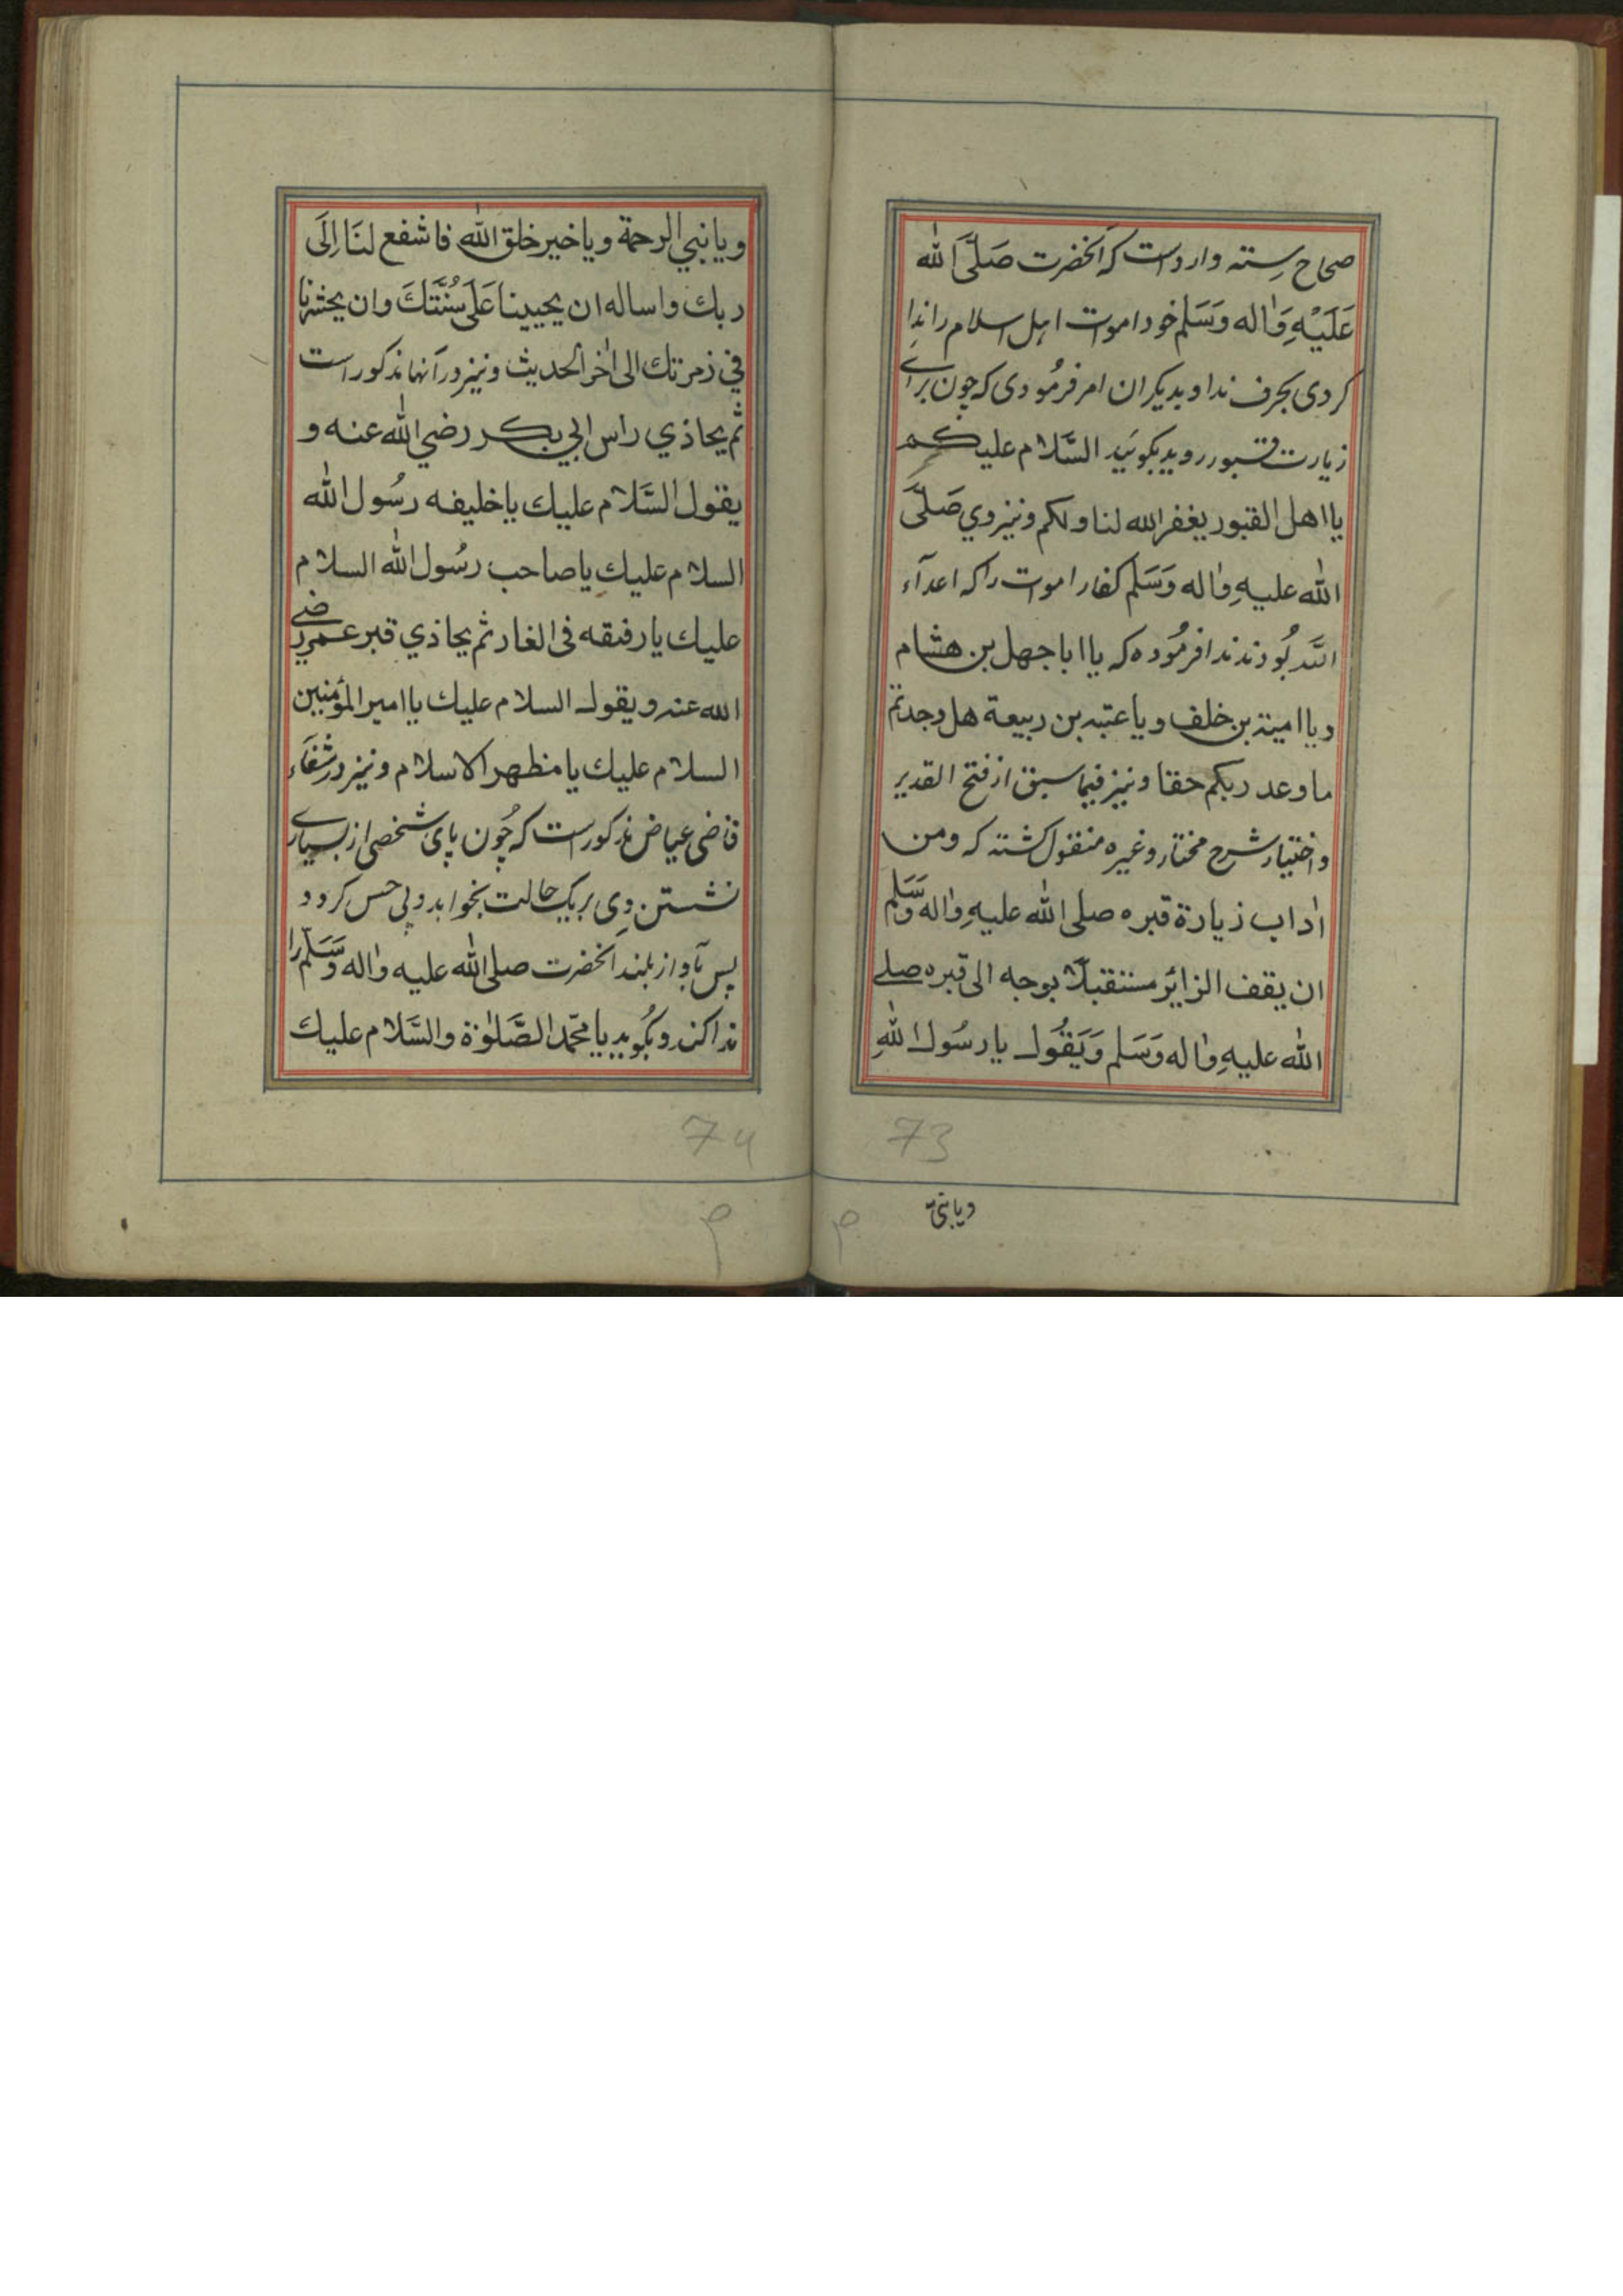 صحاح سته وارد است که آنحضرت صَلَّی الله
عَلَیْهِ وَاٰله وَسَلم خود اموات اهل اسلام را ندا
کردی بحرف ندا و بدیکران امر فرمُودی که چون برای
زیارت قبور روید بکوئید السَّلام علیکم
یا اهل القبور یغفر الله لنا ولکم و نیز وي صَلَّی
الله علیهِ واٰله وَسَلم کفار اموات را که اعدآء
الله بُودند ندا فرمُوده که یا ابا جهل بن هشام
ویا امیة بن خلف ویا عتبه بن ربیعة هل وجدتم
ما وعد ربکم حقا و نیز فیما سبق از فتح القدیر
و اختیار شرح مختار و غیره منقول کشته که ومن
اٰداب زیارة قبره صلی الله علیهِ واٰله وَسَلم
ان یقف الزایر مستقبلاً بوجه الی قبره صلی
الله علیهِ واٰله وَسَلم وَیَقُول یا رسُول اللهِ
ویا نبی
73
ویا نبي الرحمة ویا خیر خلق الله فاشفع لنَا اِلَی
ربك واساله ان یحیینا عَلَی سُنَّتكَ وان یحشرنا
في زمرتك الی اٰخر الحدیث و نیز در آنها مذکور است
ثم یحاذي راس ابي بکر رضي الله عنه و
یقول السَّلام علیك یا خلیفه رسُول الله
السلام علیك یا صاحب رسُول الله السلام
علیك یا رفیقه فی الغار ثم یحاذي قبر عمر رضی
الله عنه ویقول السلام علیك یا امیر المؤمنین
السلام علیك یا مظهر الاسلام و نیز در شفاء
قاضی عیاض مذکور است که چُون پای شخصی از بسیاری
نشستن وی بر یک حالت بخوابد و بی حس کردد
پس بآواز بلند آنحضرت صلی الله علیه واٰله وَسَلّم را
ندا کند و بکُوید یا محمّد الصَّلوٰة والسَّلام علیك
74